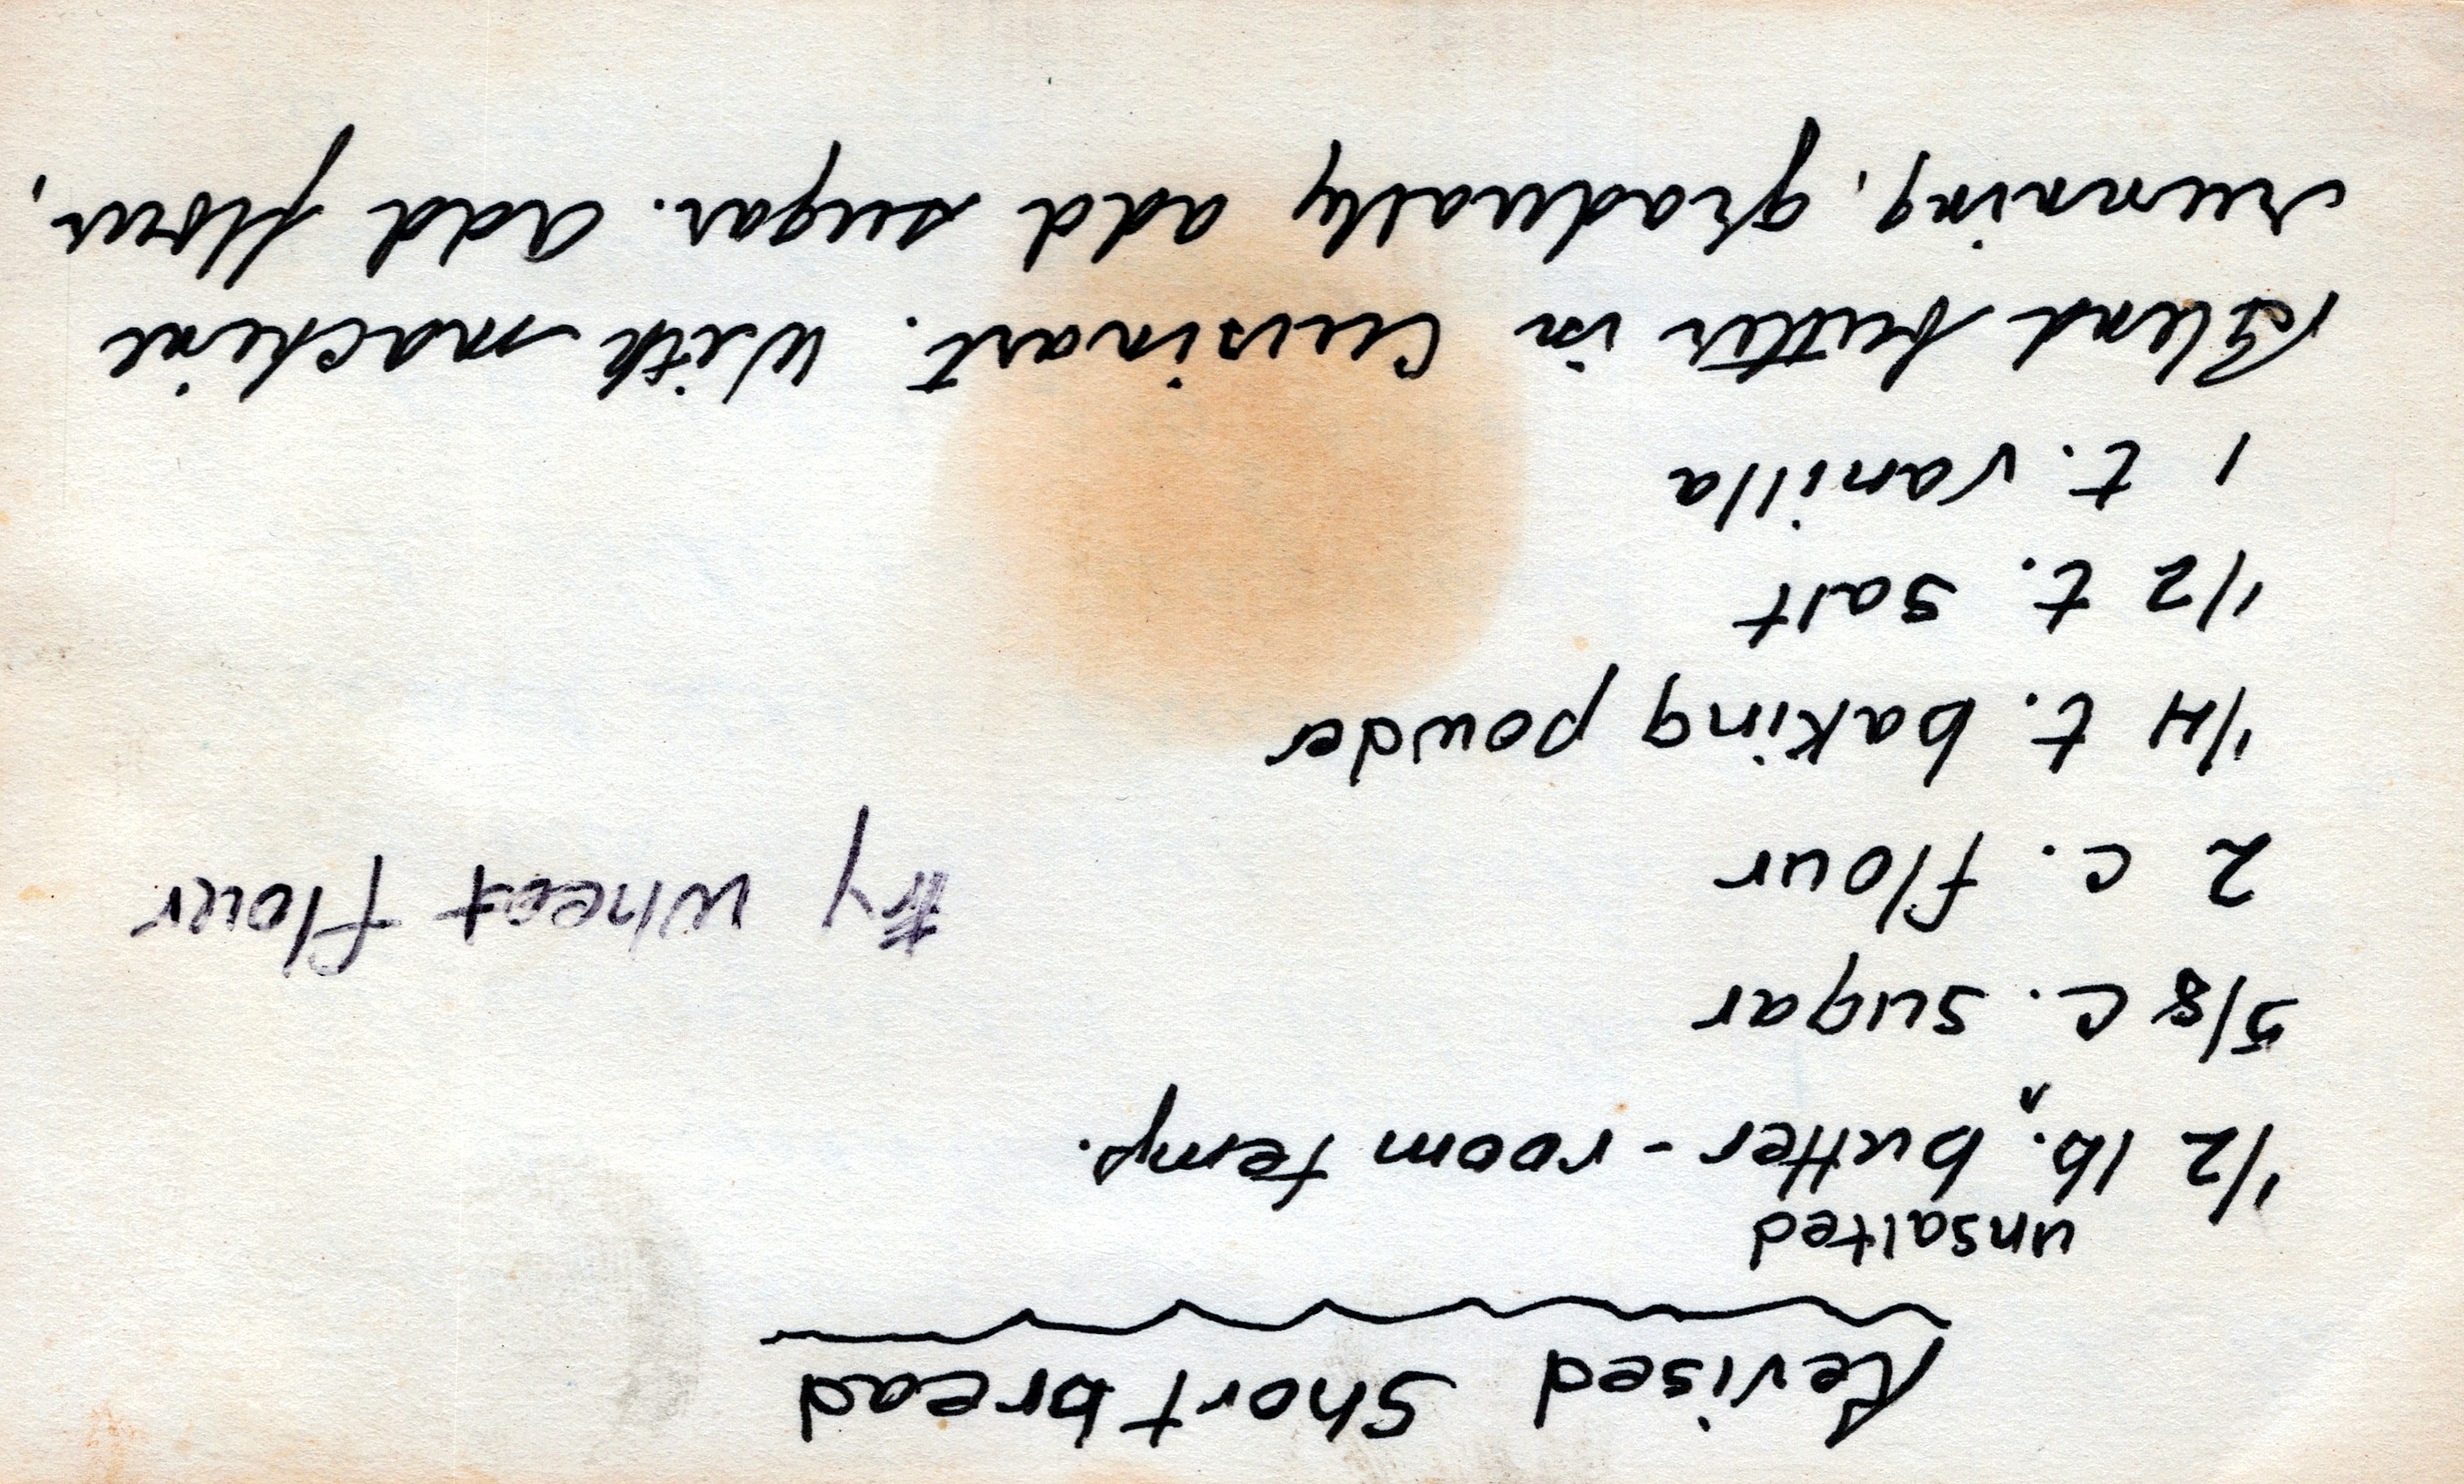 Revised Shortbread
unsalted
1/2 lb. ^ butter - room temp.
5/8 c. sugar
2 c. flour
try wheat flour
1/4 t. baking powder
1/2 t. salt
1 t. vanilla
Blend butter in Cuisinart. With machine
running, gradually add sugar. Add flour,